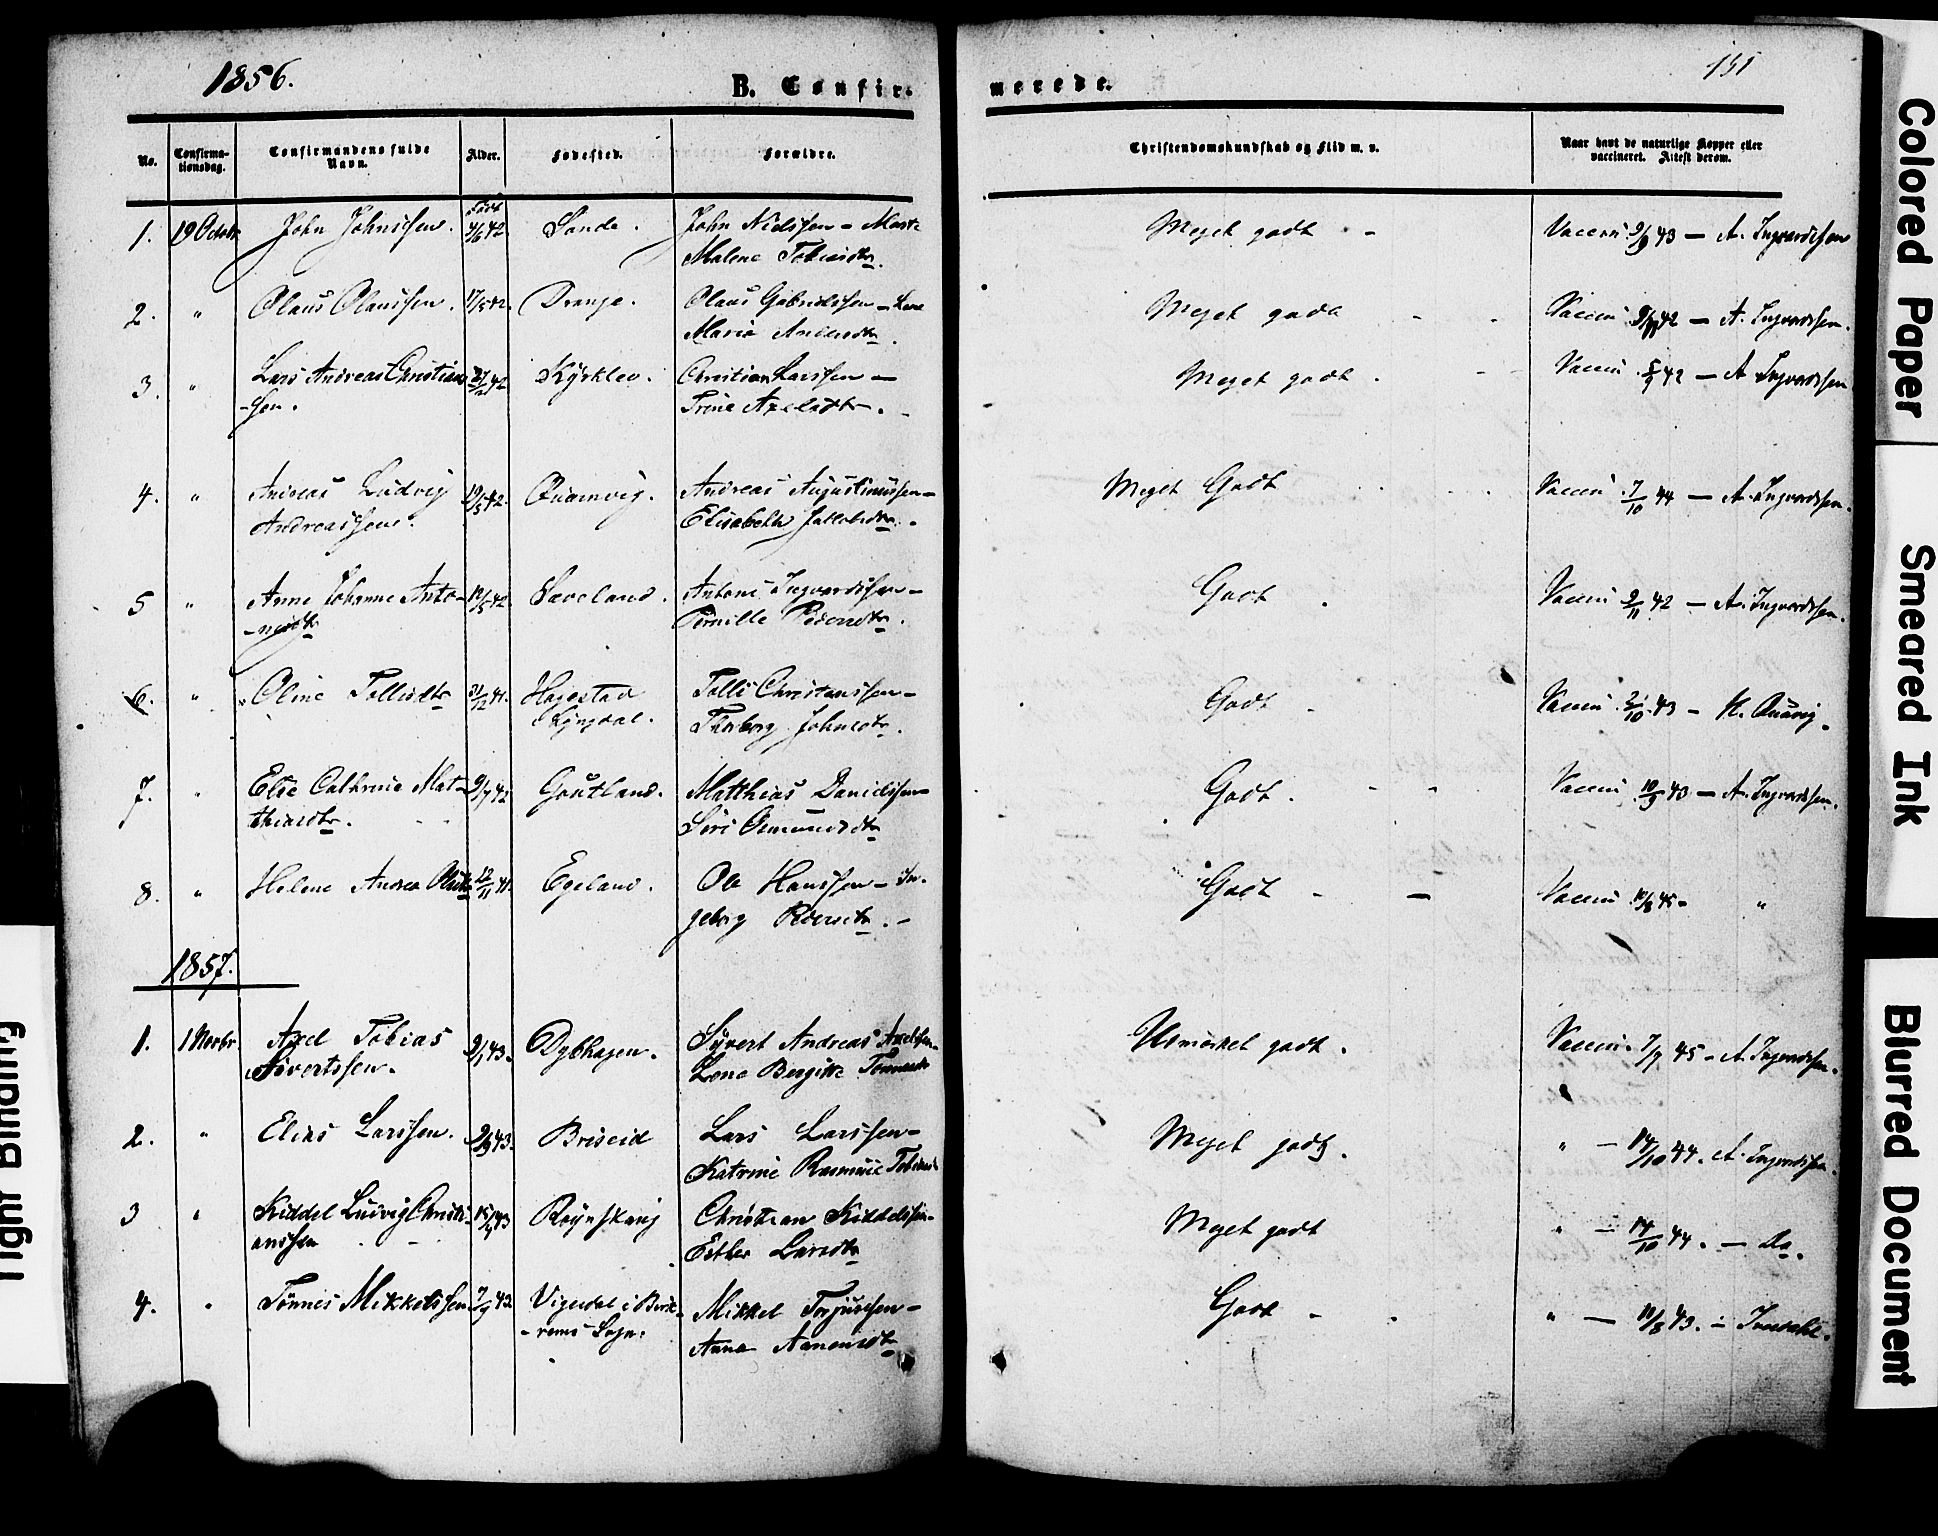 1856.
B. Confir-
merede.
151
No.
Confirma-
tionsdag.
Confirmandens fulde
Navn.
Alder.
Fødested.
Forældre.
Christendomskundskab og Flid m. v.
Naar havt de naturlige Kopper eller
vaccineret. Attest derom.
1. 19 Octobr John Johnsen. Født 4/6 42 Sande. John Nielssen - Marte
Malene Tobiasdtr.
Meget godt - Vaccin 2/9 43 - A. Ingvardsen
2. " Olaus Olaussen. 17/5 42. Drange. Olaus Gabrielssen - Lene
Maria Andersdtr.
Meget godt - Vaccin 42 - A. Ingvardsen.
3. " Lars Andreas Christian-
-sen. 42 Kirklev. Christian Larssen -
Trine Axelsdtr. -
Meget godt. - Vaccin 5/9 42 - A Ingvardsen
4. " Andreas Ludvig
Andreassen. 19/5 42. Qvamvig. Andreas Augustinussen -
Elisabeth Jakobsdtr.
Meget Godt Vaccin 7/10 44 - A. Ingvardsen.
5 " Anne Johanne Anto-
-nisdtr 10/5 42. Sæveland. Antoni Ingvardsen -
Pernille Pedersdtr.
Godt. Vaccin 2/11 42 - A. Ingvardsen.
6. " Oline Tollisdtr 31/12 41. Hægestad
Lyngdal. Tolli Christenssen -
Thorborg Johnsdtr.
Godt - Vaccin 2/10 43 - H. Qvavig.
7. " Else Cathrine Mat-
thiasdtr. 9/7 42 Gautland. Matthias Danielssen -
Siri Osmundsdtr
Godt. - - Vaccin 10/9 43 - A. Ingvardsen.
8. " Helene Andrea Olsdtr 12/11 41. Egeland. Ole Hanssen - In-
geborg Pedersdtr. -
Godt - - Vaccin 10/8 45 - "
1857.
1. 1 Novbr. Axel Tobias
Sivertssen. 2/1 43. Dybhagen. Sivert Andreas Axelsen -
Lene Bergitte Tønnesdtr
Udmærket godt. Vaccin. 7/7 45 - A. Ingvardsen.
2. " Elias Larssen. 2/9 43. Briseid Lars Larssen -
Katrine Rasmine Tobiasdtr
Meget godt. " - 14/10 44. A. Ingvardsen.
3 " Kiddel Ludvig Christi-
anssen 43 Christian Kiddelsen -
Esther Larsdtr
Meget godt " - 14/10 44. - Do.
4. " Tønnes Mikkelssen 7/9 43 Vigesdal i
Sogn. Mikkel Torjussen -
Anna Aanensdtr
Godt - . " - 11/8 43. - Tvedt
Colored Paper
Smeared Ink
Blurred Document
Tight Binding